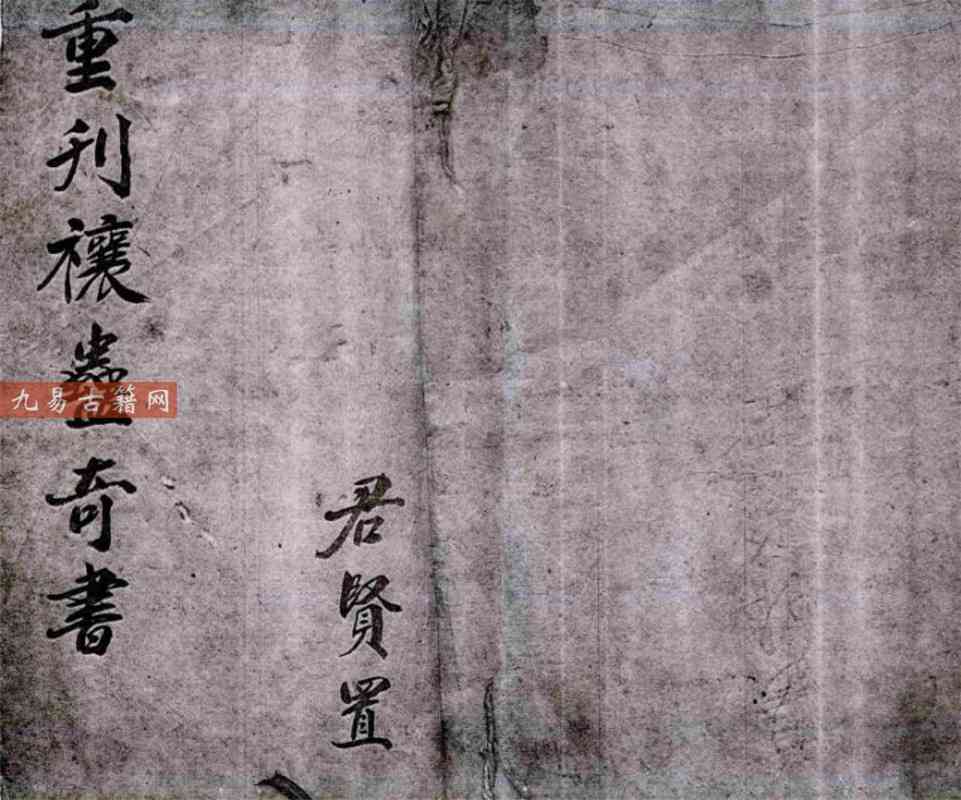 君賢置
重刊禳蠱奇書
九易古籍网